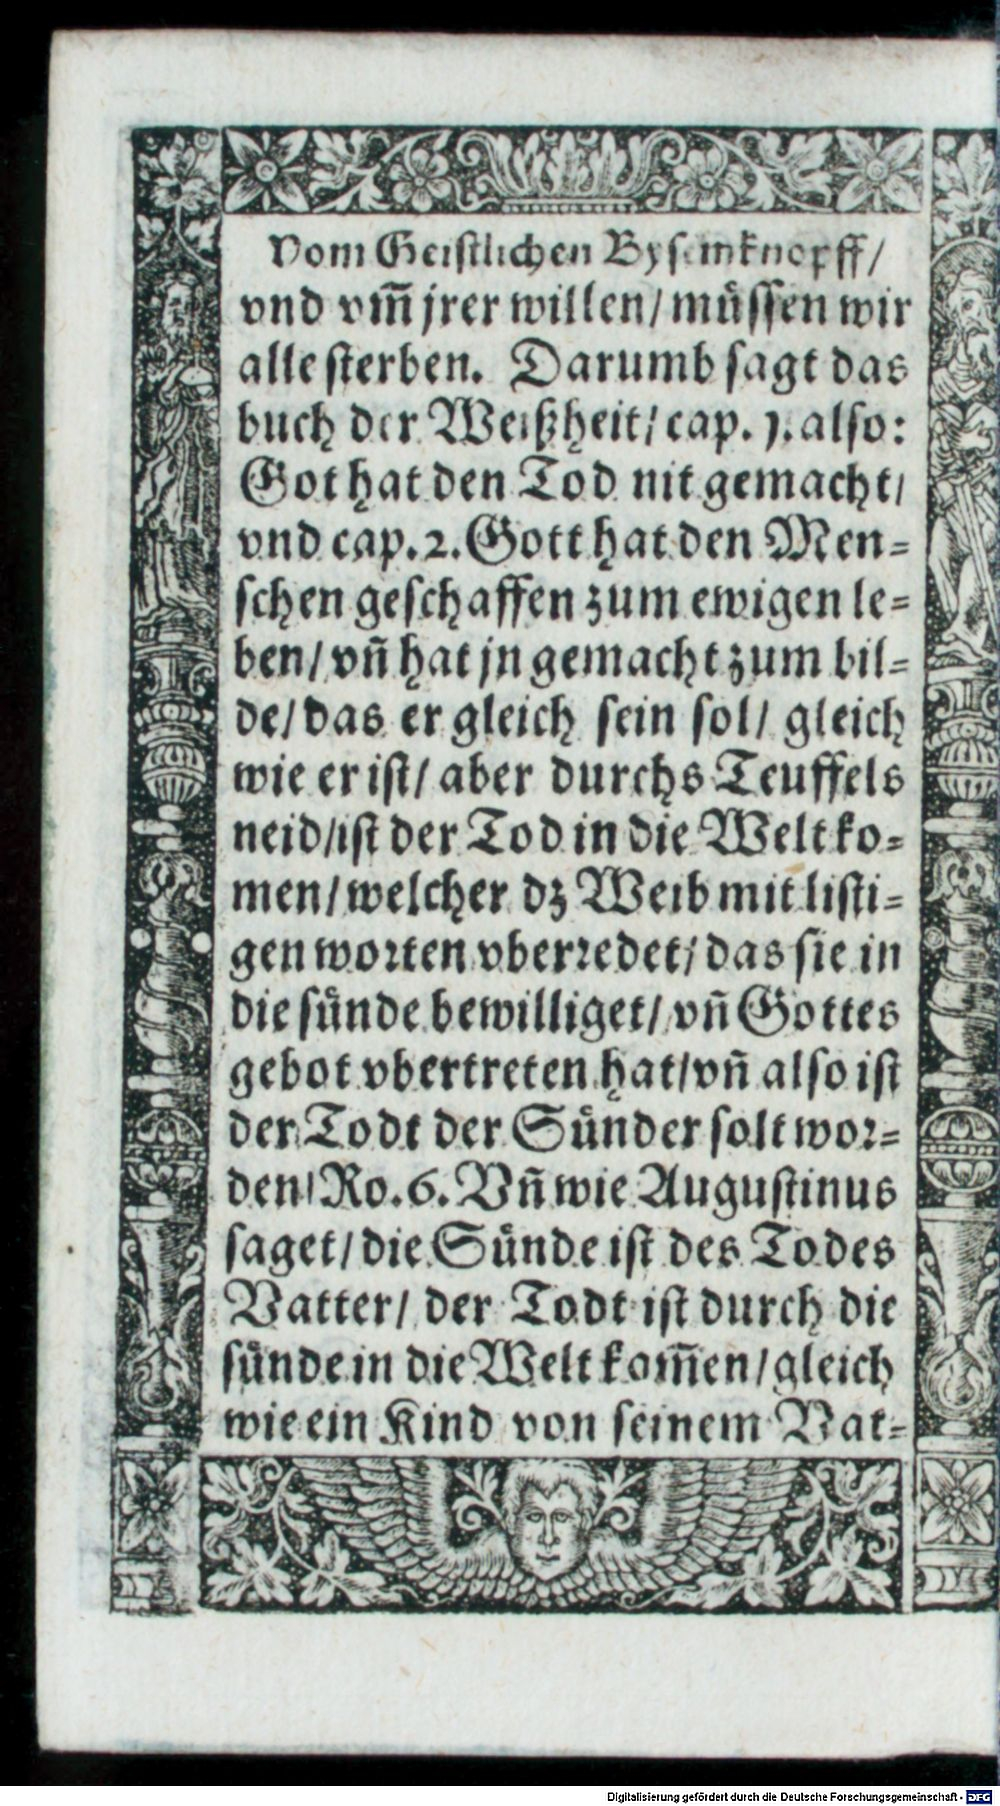 Vom Geistlichen Bysemknopff/
vnd vm̃ jrer willen/ müssen wir
alle sterben. Darumb sagt das
buch der Weißheit/ cap. 1. also:
Got hat den Tod nit gemacht/
vnd cap. 2. Gott hat den Men=
schen geschaffen zum ewigen le=
ben/ vñ hat jn gemacht zum bil=
de/ das er gleich sein sol/ gleich
wie er ist/ aber durchs Teuffels
neid/ ist der Tod in die Welt ko=
men/ welcher dz Weib mit listi=
gen worten vberredet/ das sie in
die sünde bewilliget/ vñ Gottes
gebot vbertreten hat/ vñ also ist
der Todt der Sünder solt wor=
den/ Ro. 6. Vñ wie Augustinus
saget/ die Sünde ist des Todes
Vatter/ der Todt ist durch die
sünde in die Welt kom̃en/ gleich
wie ein Kind von seinem Vat=
Digitalisierung gefördert durch die Deutsche Forschungsgemeinschaft - DFG